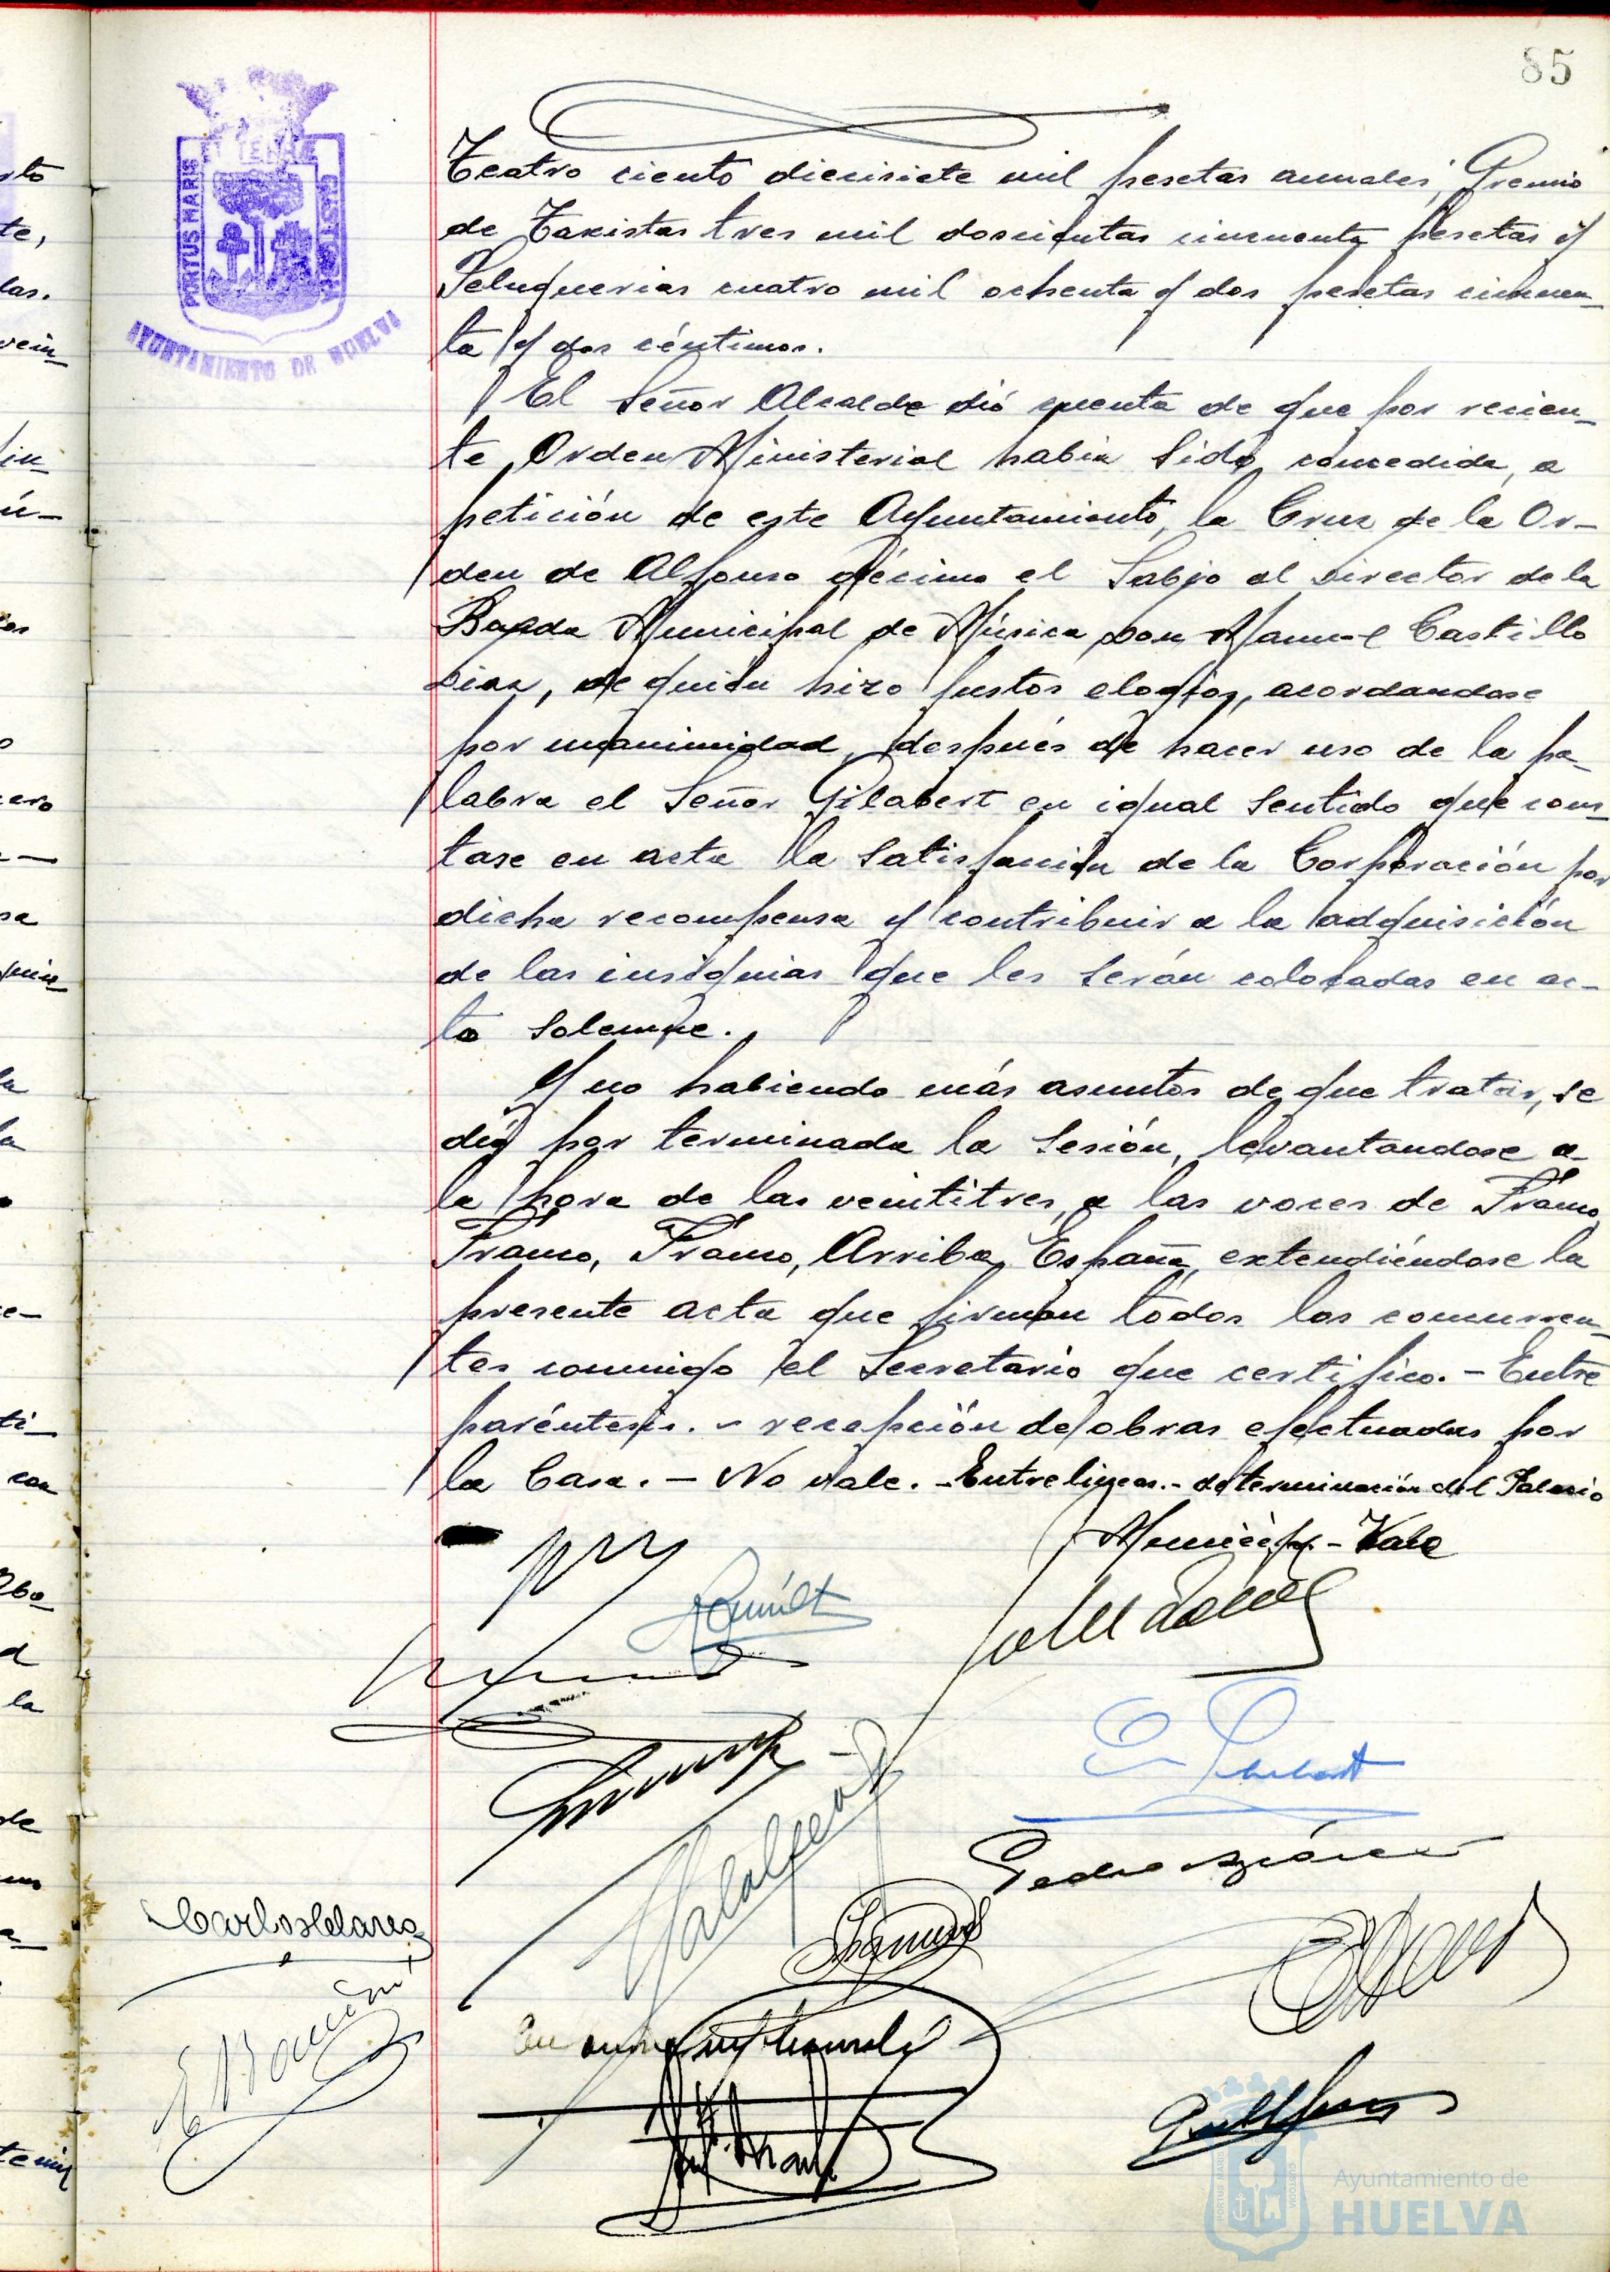 85
ET TERRAE
PORTUS MARIS
CUSTODIA
AYUNTAMIENTO DE HUELVA
Teatro ciento diecisiete mil pesetas anuales; Gremio
de Taxistas tres mil doscientas cincuenta pesetas y
Peluquerias cuatro mil ochenta y dos pesetas cincuen-
ta y dos céntimos.
El Señor Alcalde dió cuenta de que por recien-
te Orden Ministerial habia sido concedida, a
petición de este Ayuntamiento, la Cruz de la Or-
den de Alfonso décimo el Sabio al Director de la
Banda Municipal de Música Don Manuel Castillo
Diaz, de quien hizo justos elogios, acordandose
por unanimidad, después de hacer uso de la pa-
labra el Señor Gilabert en igual sentido que cons-
tase en acta la satisfacción de la Corporación por
dicha recompensa y contribuir a la adquisición
de las insignias que les serán colocadas en ac-
to solemne.
Y no habiendo más asuntos de que tratar, se
dió por terminada la sesión, levantandose a
la hora de las veintitres, a las voces de Franco,
Franco, Franco, Arriba España, extendiéndose la
presente acta que firman todos los concurren-
tes conmigo el Secretario que certifico. - Entre
paréntesis. - recepción de obras efectuadas por
la Casa. - No vale. - Entrelineas. - determinación del Palacio
Municip. - Vale
Pedro
Carlos
Ayuntamiento de
HUELVA